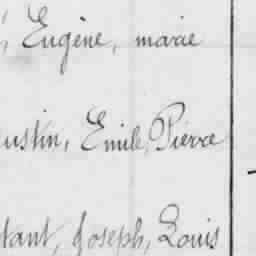 , Eugène, marie
ustin, Emile, Pierre
tant, Joseph, Louis